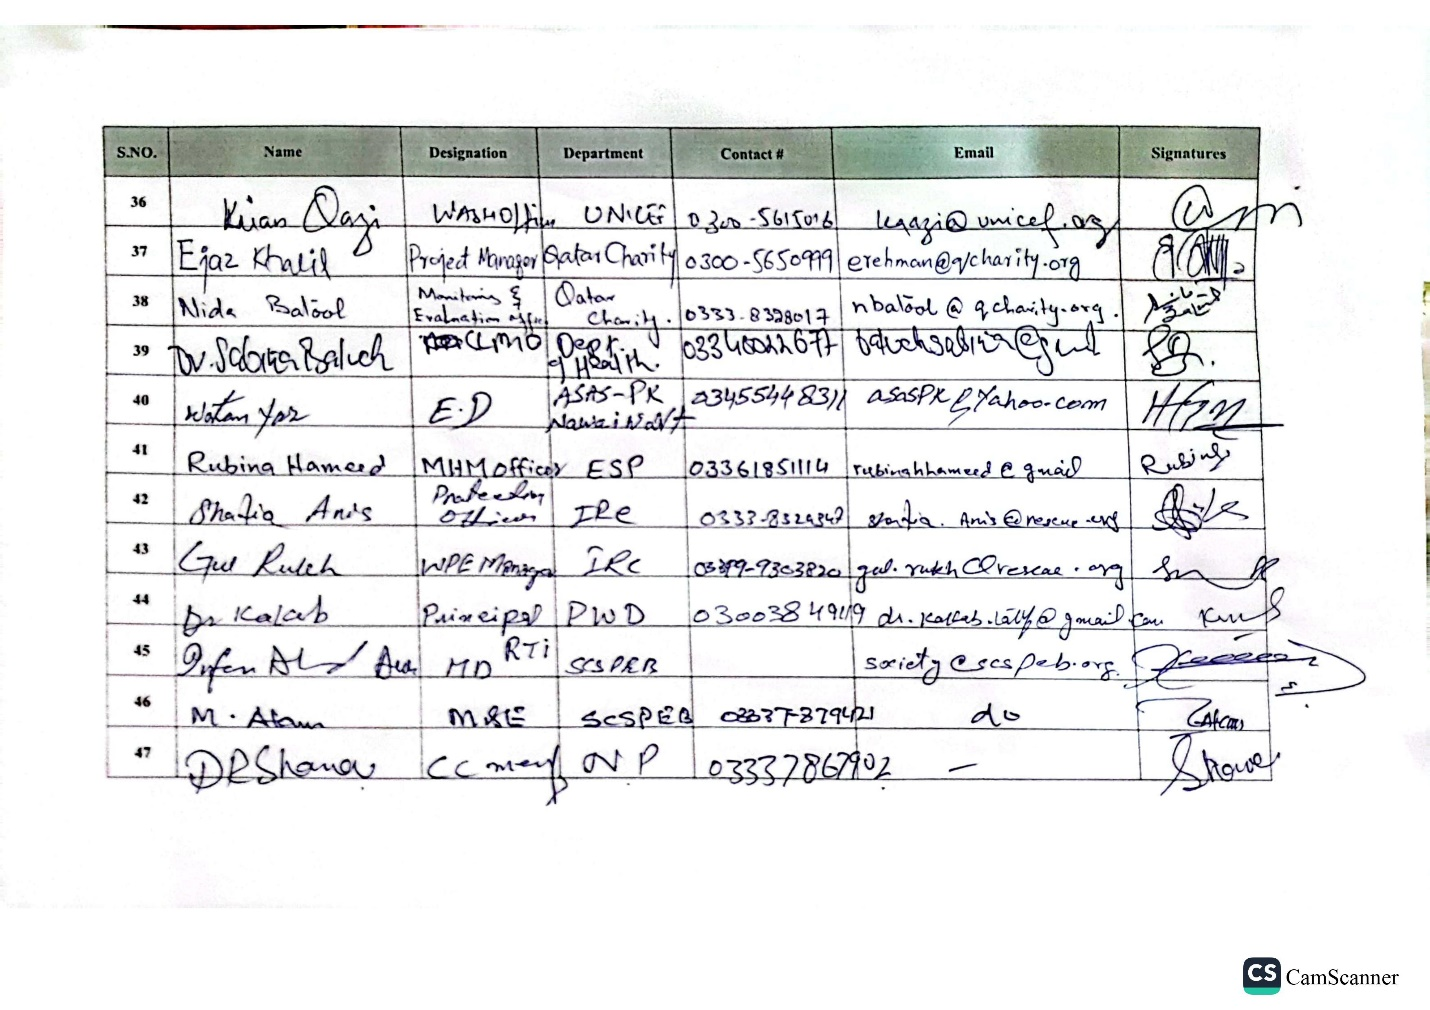 S.NO. Name Designation Department Contact # Email Signatures
36 Kiran Qazi WASH Officer UNICEF 0300-5615016 kqazi@unicef.org
37 Ejaz Khalil Project Manager Qatar Charity 0300-5650999 erehman@qcharity.org
38 Nida Batool Monitoring & Evaluation Qatar Charity. 0333-8328017 nbatool@qcharity.org.
39 Dr. Sabira Baluch CLMO Deptt. of Health. 03340022677
40 Watan Yar E.D ASAS-PK 03455448311 asasPK@Yahoo.com
41 Rubina Hameed MHM officer ESP 03361851114 rubinahhameed@gmail Rubina
42 Shafia Anis Protection Officer IRC Anis@rescue.org
43 Gul Rukh WPE Manager IRC gul.rukh@rescue.org
44 Dr Kalab Principal RTI PWD 03003849119
45 Irfan MD SCSPEB society@scspeb.org.
46 M. Alam M&E SCSPEB do
47 DR Shana CC NP 03337867902 —
CS CamScanner